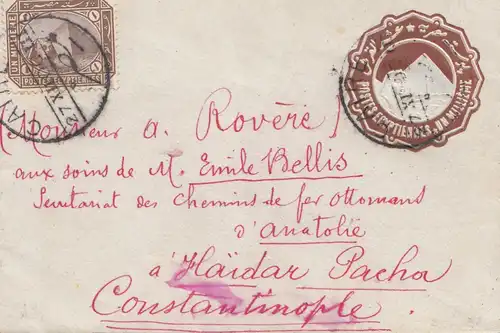 UN MILLIEME
POSTES EGYPTIENNES
بوسته مصرية
POSTES EGYPTIENNES UN MILLIEME
Monsieur A. Rovère
aux soins de M. Emile Bellis
Secrétariat des Chemins de fer Ottomans
d'Anatolie
à Haïdar Pacha
Constantinople.